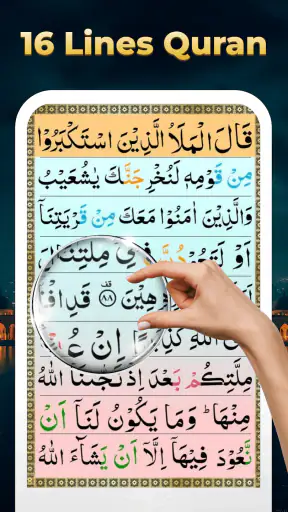 16 Lines Quran
قَالَ الْمَلَاُ الَّذِيْنَ اسْتَكْبَرُوْا
مِنْ قَوْمِهٖ لَنُخْرِجَنَّكَ يٰشُعَيْبُ
وَالَّذِيْنَ اٰمَنُوْا مَعَكَ مِنْ قَرْيَتِنَاۤ
اَوْ لَتَعُوْدُنَّ فِيْ مِلَّتِنَا
٨٨
كَذِبًا اِنْ
مِلَّتِكُمْ بَعْدَ اِذْ نَجّٰىنَا اللّٰهُ
مِنْهَا ؕ وَمَا يَكُوْنُ لَنَاۤ اَنْ
نَّعُوْدَ فِيْهَاۤ اِلَّاۤ اَنْ يَّشَآءَ اللّٰهُ